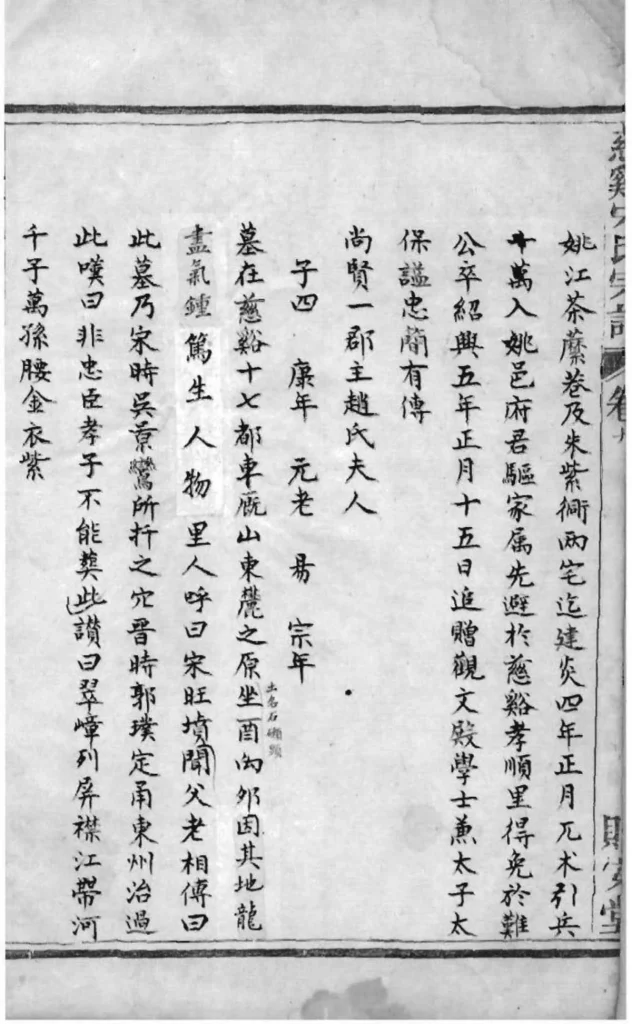 姚江茶蘪巷及朱紫衕兩宅迄建炎四年正月兀术引兵
十萬入姚邑府君驅家属先避於慈谿孝順里得免於難
公卒紹興五年正月十五日追贈觀文殿學士兼太子太
保謚忠簡有傳
尚賢一郡主趙氏夫人
子四 康年 元老 易 宗年
墓在慈谿十七都車廐山東麓之原坐酉向夘因其地龍
土名石
盡氣鍾篤生人物里人呼曰宋旺墳聞父老相傳曰
此墓乃宋時吳景鸞所扦之穴晋時郭璞定甬東州治過
此嘆曰非忠臣孝子不能塟此讃曰翠嶂列屏襟江帶河
千子萬孫腰金衣紫
慈谿宋氏宗譜 卷